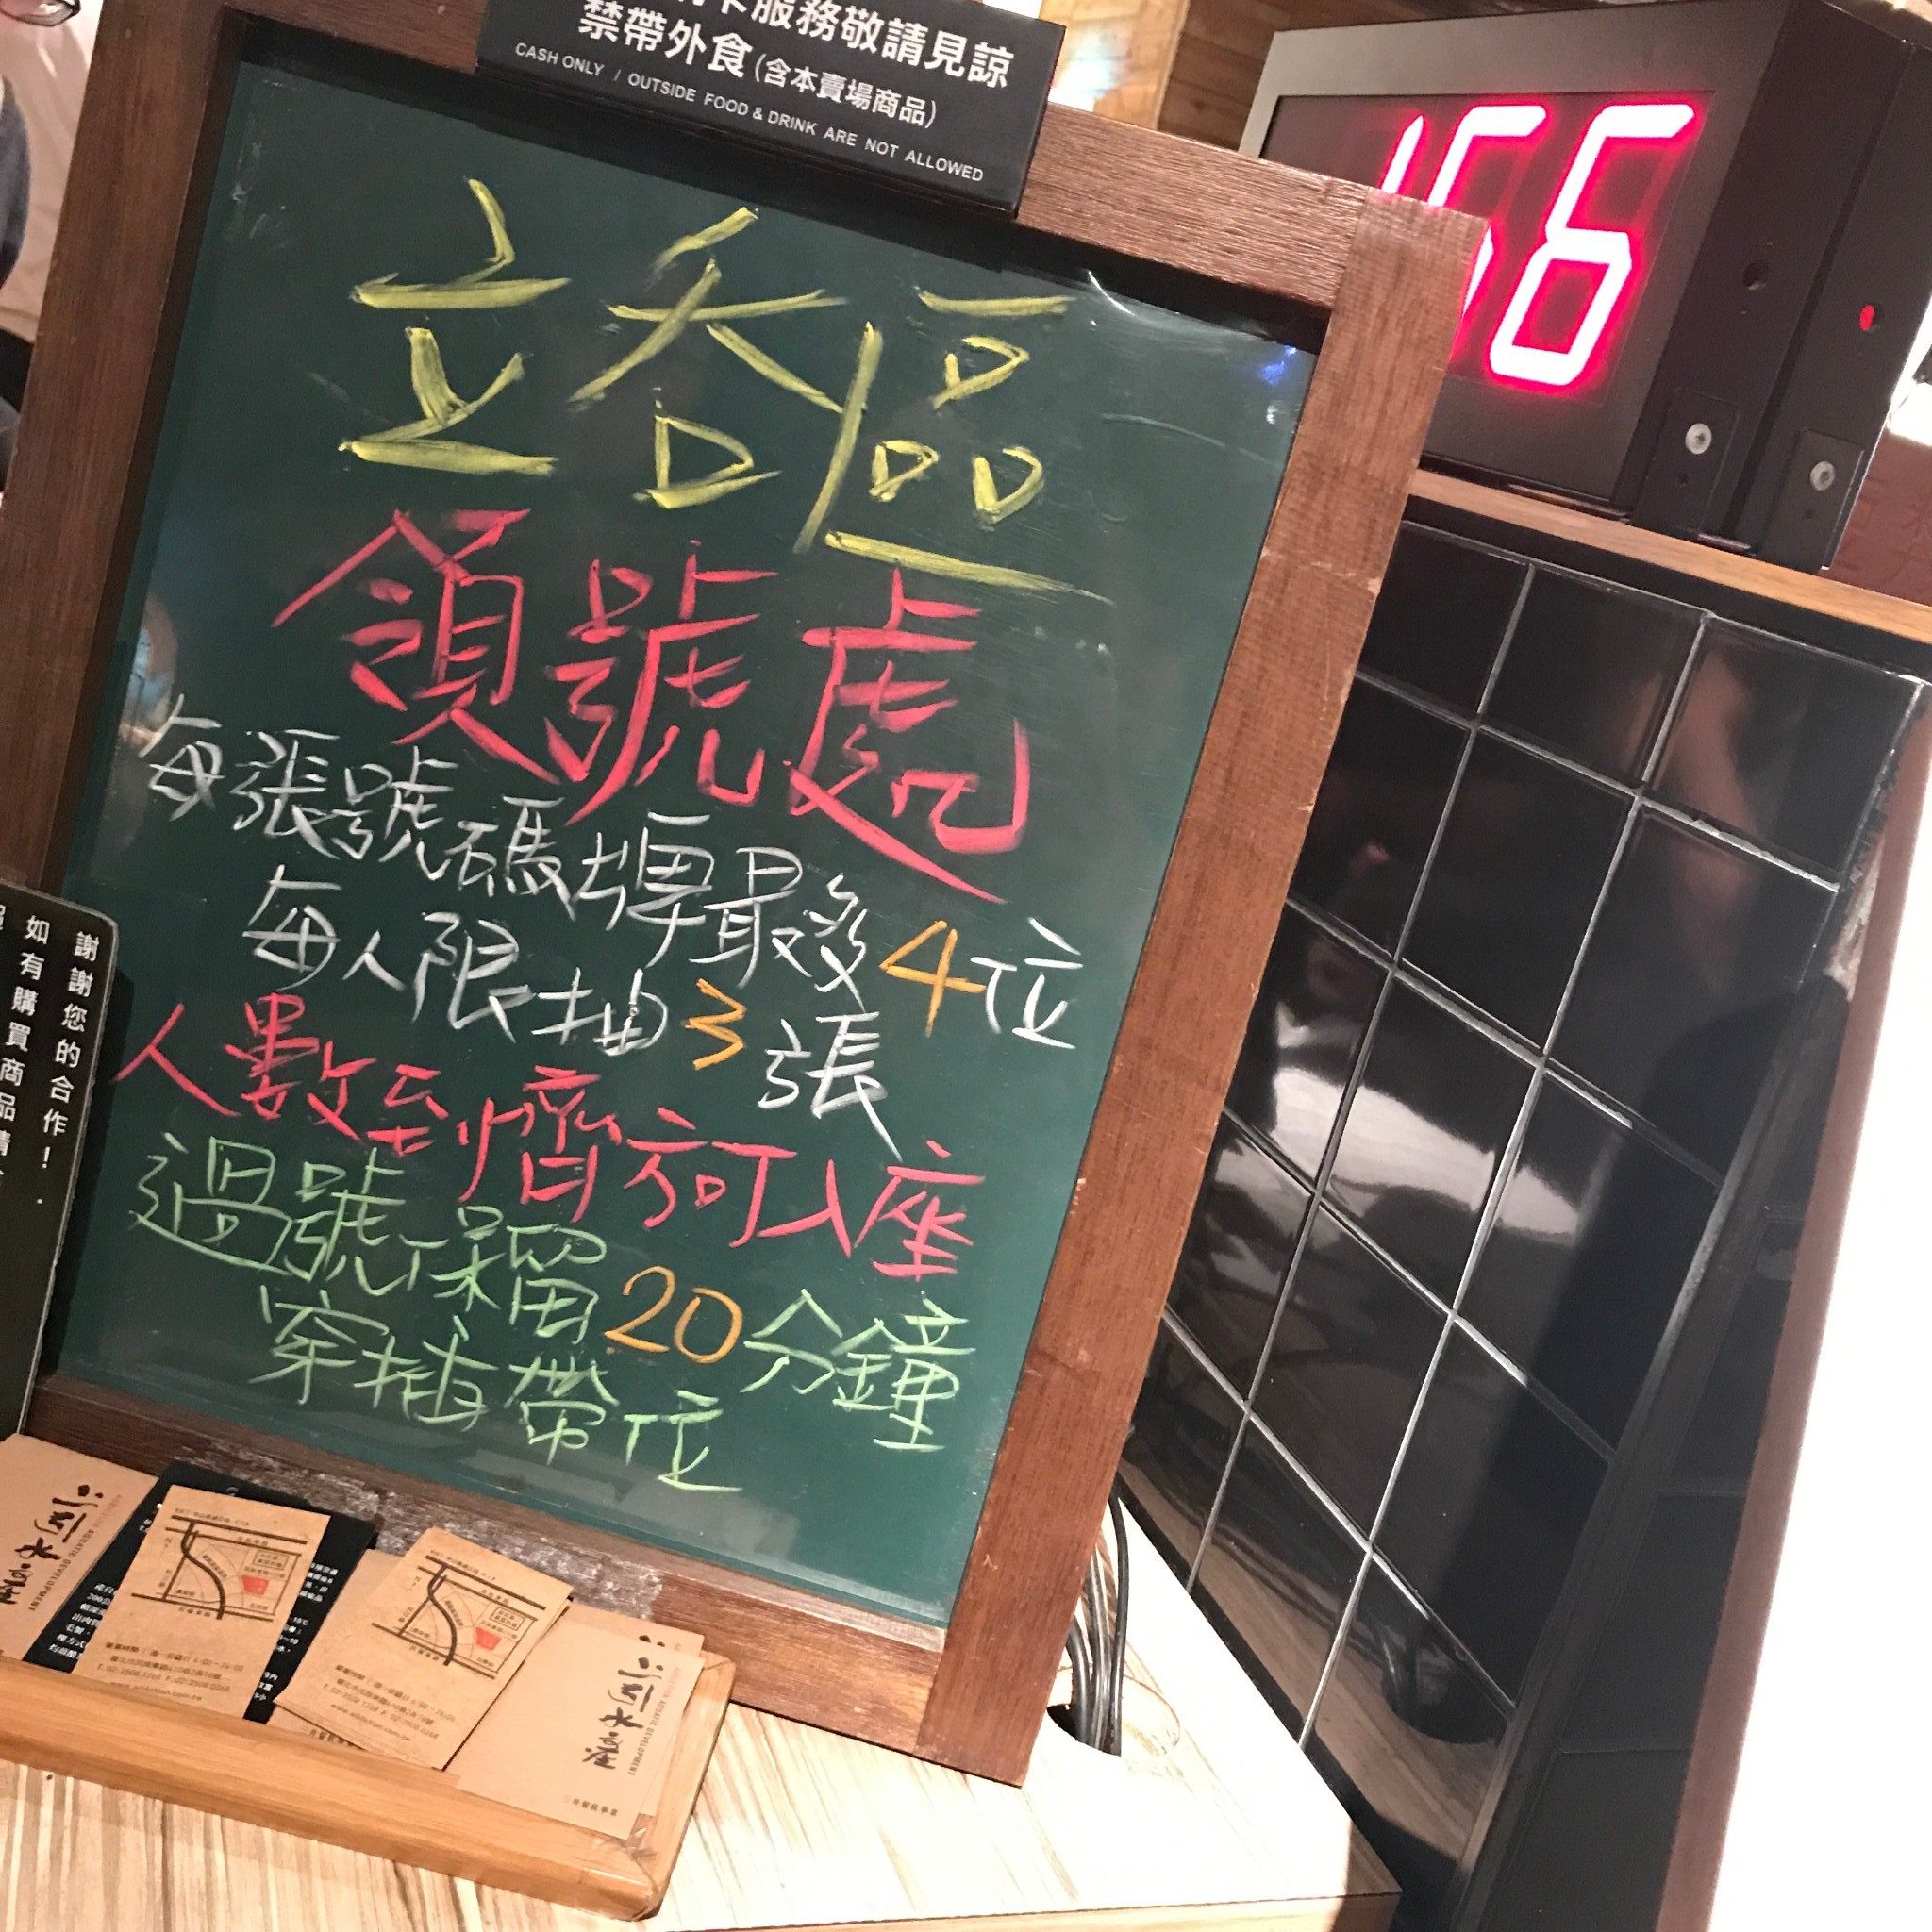 服務敬請見諒
禁帶外食(含本賣場商品)
CASH ONLY / OUTSIDE FOOD & DRINK ARE NOT ALLOWED
166
立吞區
領號處
每張號碼牌最多4位
每人限抽3張
人數到齊方可入座
過號保留20分鐘
穿插帶位
謝謝您的合作！
如有購買商品請
AQUATIC DEVELOPMENT
www.addiction.com.tw
www.addiction.com.tw
AQUATIC DEVELOPMENT
三井餐飲事業